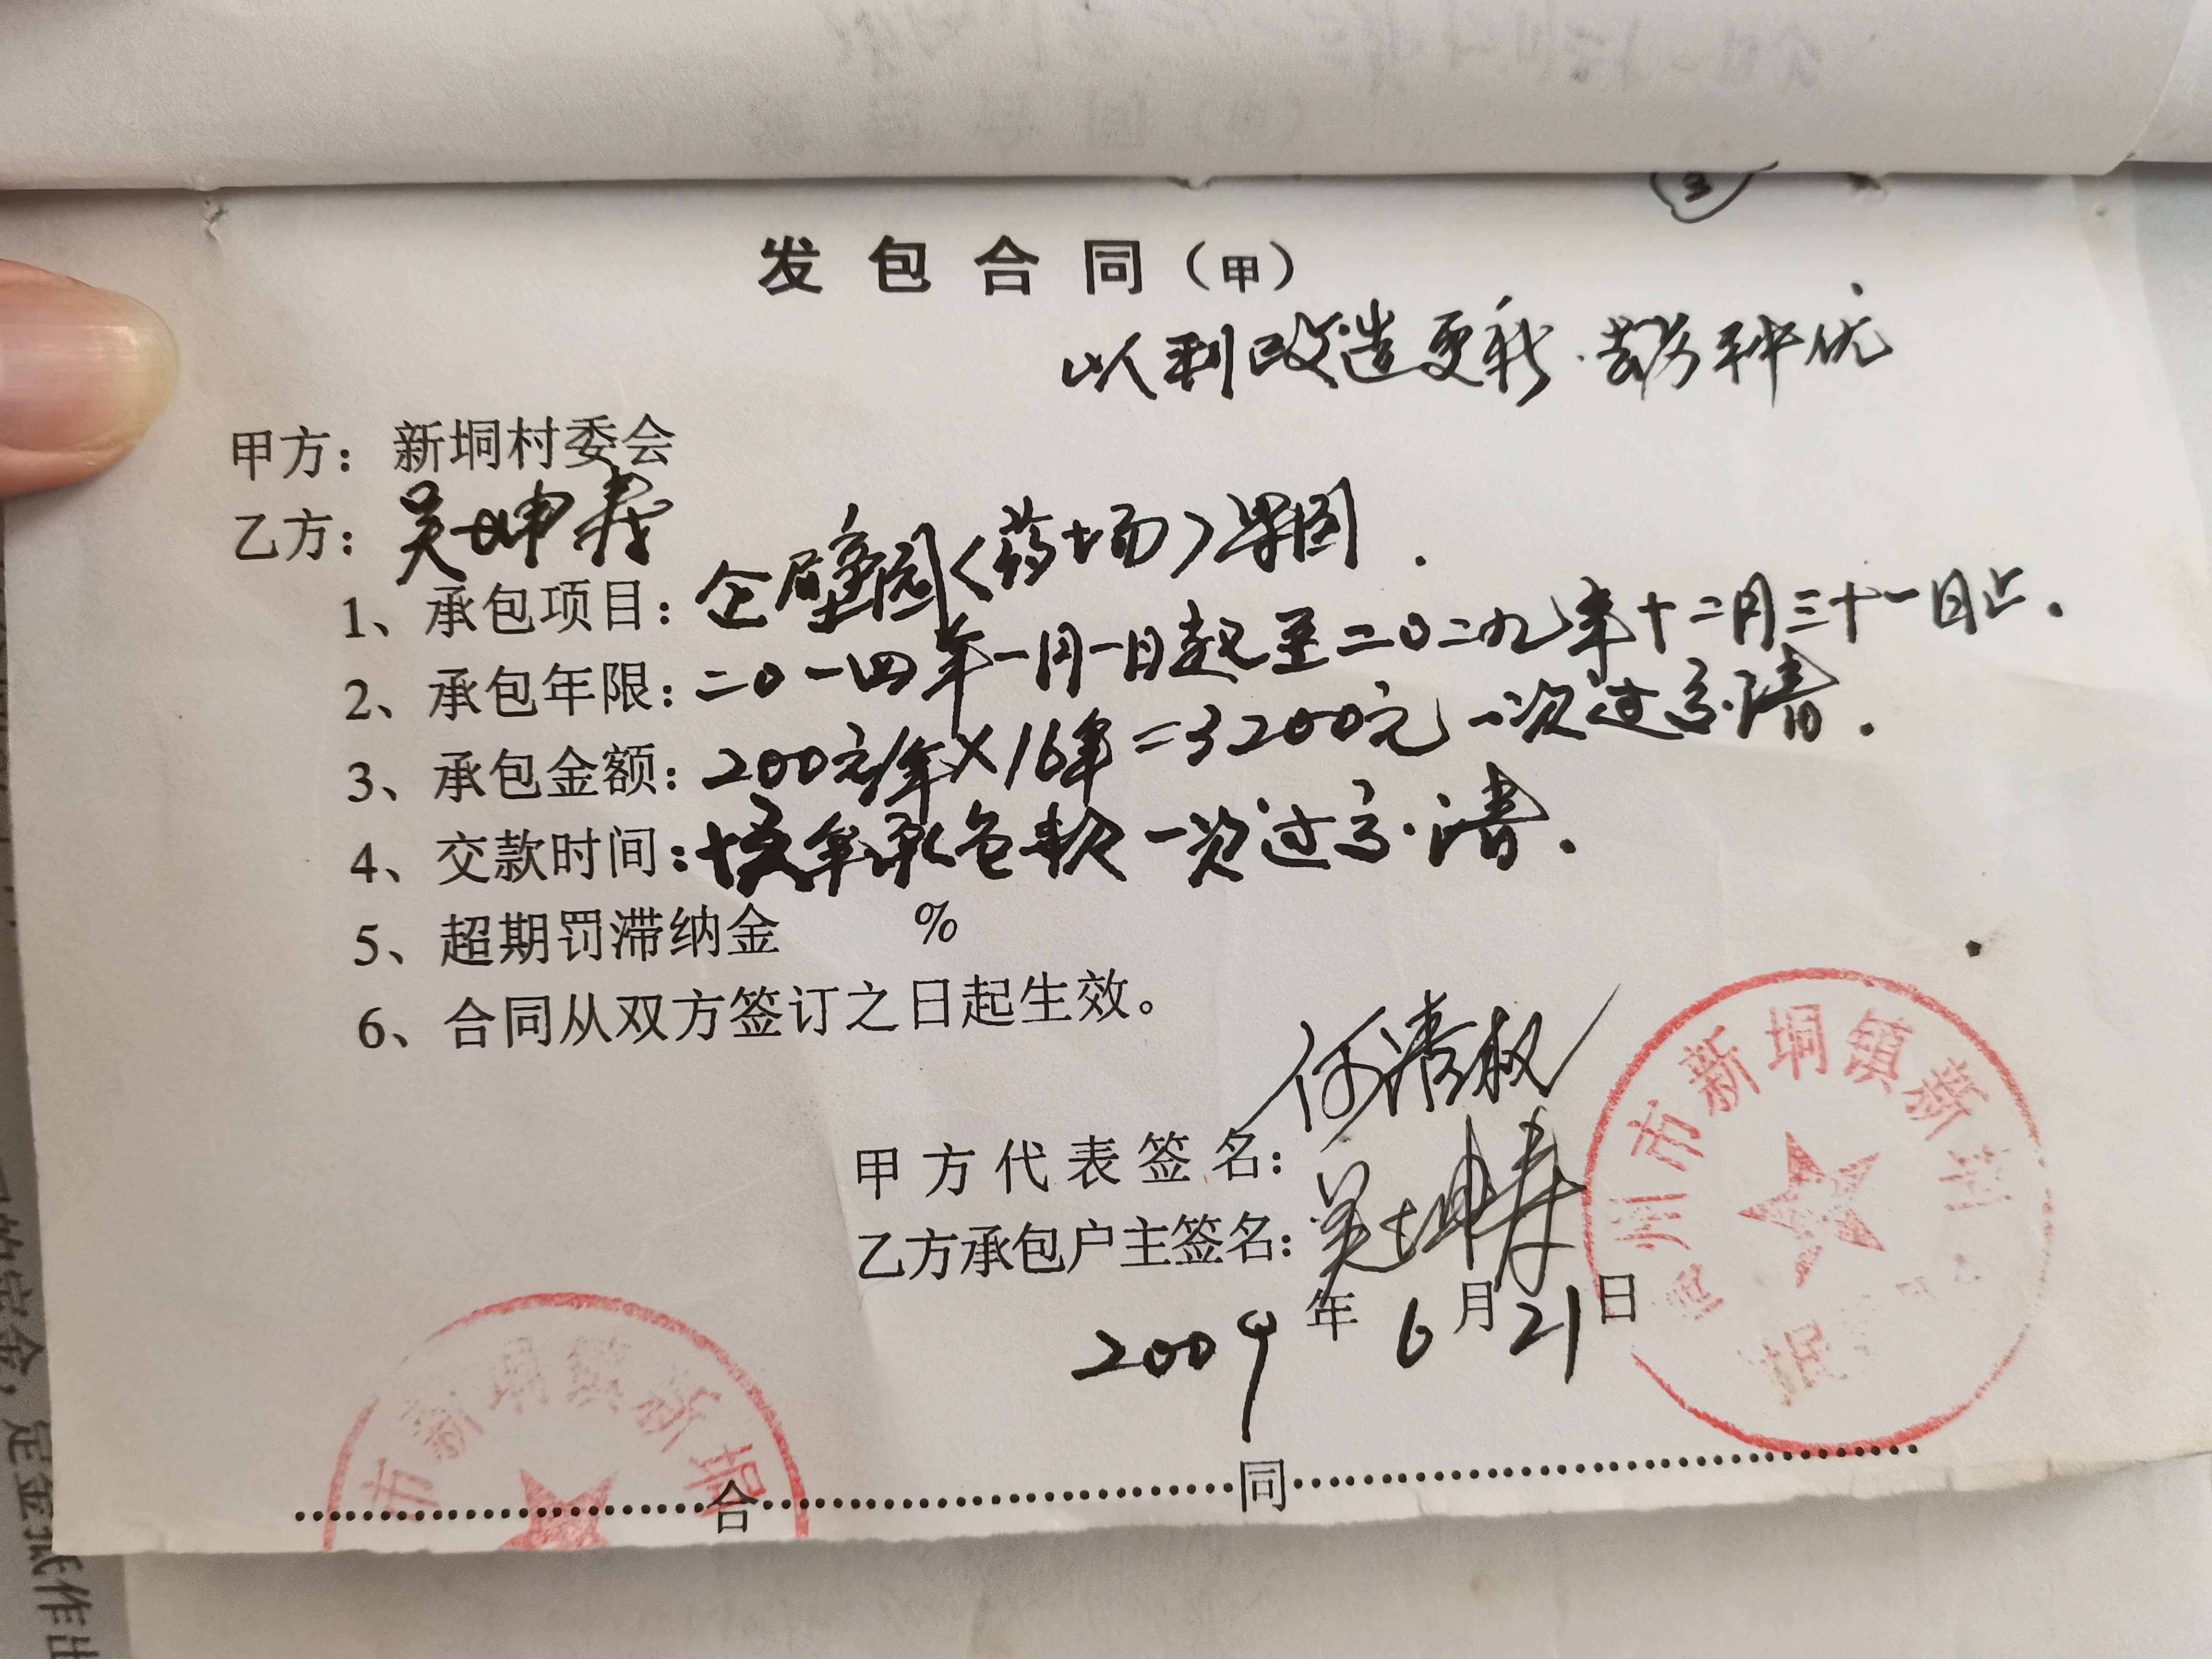 ③
发包合同（甲）
以利改造更新·去劣种优
甲方：新垌村委会
乙方：吴坤寿
1、承包项目：仓壁园<药场>果园.
2、承包年限：二0一四年一月一日起至二0二九年十二月三十一日止.
3、承包金额：200元/年×16年=3200元一次过交清.
4、交款时间：承包款一次过交清.
5、超期罚滞纳金 %
6、合同从双方签订之日起生效。
甲方代表签名：何清权
乙方承包户主签名：吴坤寿
2009年6月21日
州市新垌镇新垌
市新垌镇新垌
合同